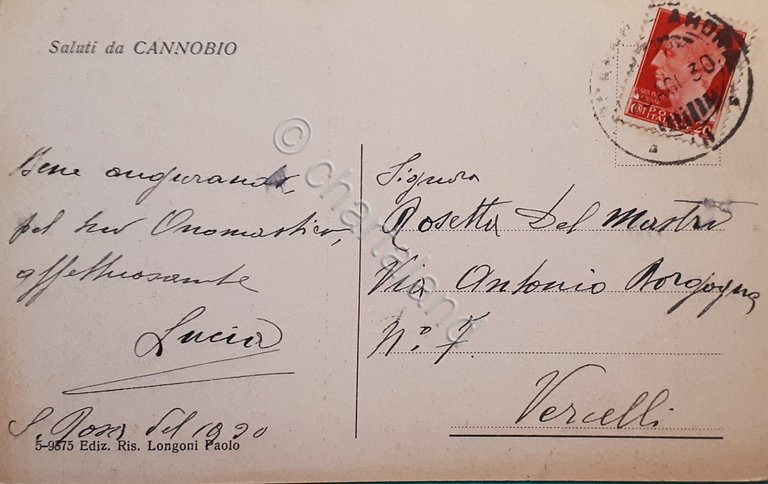 Saluti da CANNOBIO
Bene augurando,
pel tuo Onomastico,
affettuosamente
Lucia
S. Rosa del 1930
5-9575 Ediz. Ris. Longoni Paolo
Signora
Rosetta Del Mastri
Via Antonio Borgogna
N.° 7
Vercelli
ARONA
30
© chartaland